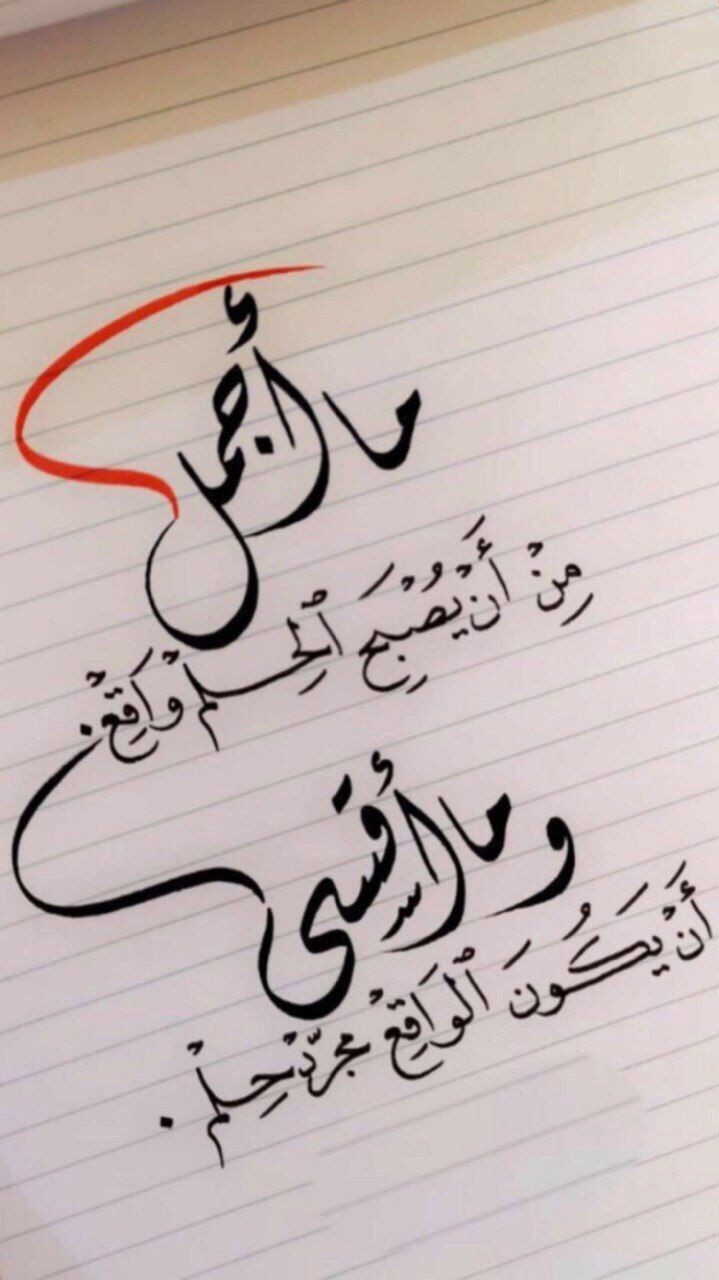 ما أجمل
مِنْ أَنْ يُصْبِحَ ٱلحِلم وَاقِعْ.
وما أقسى
أَنْ يَكُونَ ٱلوَاقِعْ مجرّدْ حِلمْ.